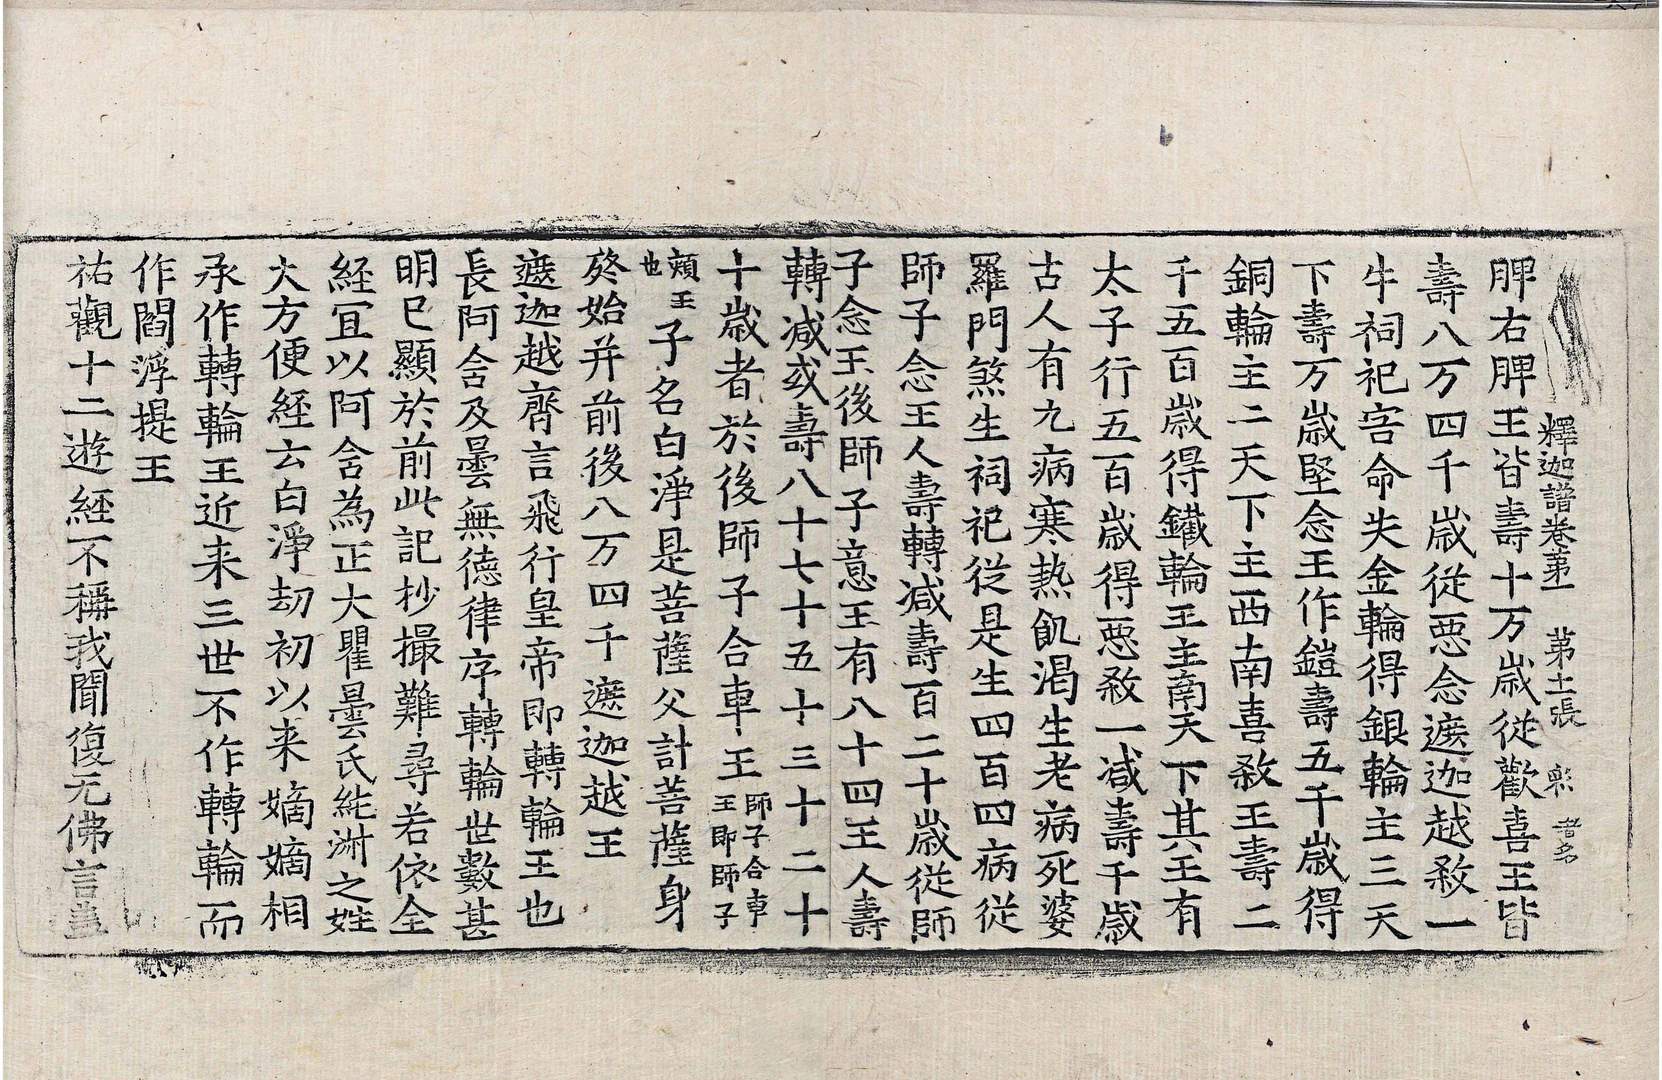 釋迦譜卷苐一　苐十一張　㷱　普名
髀右髀王皆壽十万歲從歡喜王皆
壽八万四千歲從惡念遮迦越敎一
牛祠祀害命失金輪得銀輪主三天
下壽万歲堅念王作鎧壽五千歲得
銅輪主二天下主西南喜敎王壽二
千五百歲得鐵輪王主南天下其王有
太子行五百歲得惡敎一減壽千歲
古人有九病寒熱飢渴生老病死婆
羅門煞生祠祀從是生四百四病從
師子念王人壽轉減壽百二十歲從師
子念王後師子意王有八十四王人壽
轉減或壽八十七十五十三十二十
十歲者於後師子合車王師子合車王即師子
頰王也子名白淨是菩薩父計菩薩身
終始并前後八万四千遮迦越王
遮迦越齊言飛行皇帝即轉輪王也
長阿含及曇無德律序轉輪世數甚
明已顯於前此記抄撮難尋若依全
経冝以阿含為正大瞿曇氏純淋之姓
大方便経云白淨劫初以来嫡嫡相
承作轉輪王近来三世不作轉輪而
作閻浮提王
祐觀十二遊経不稱我聞復无佛言盖